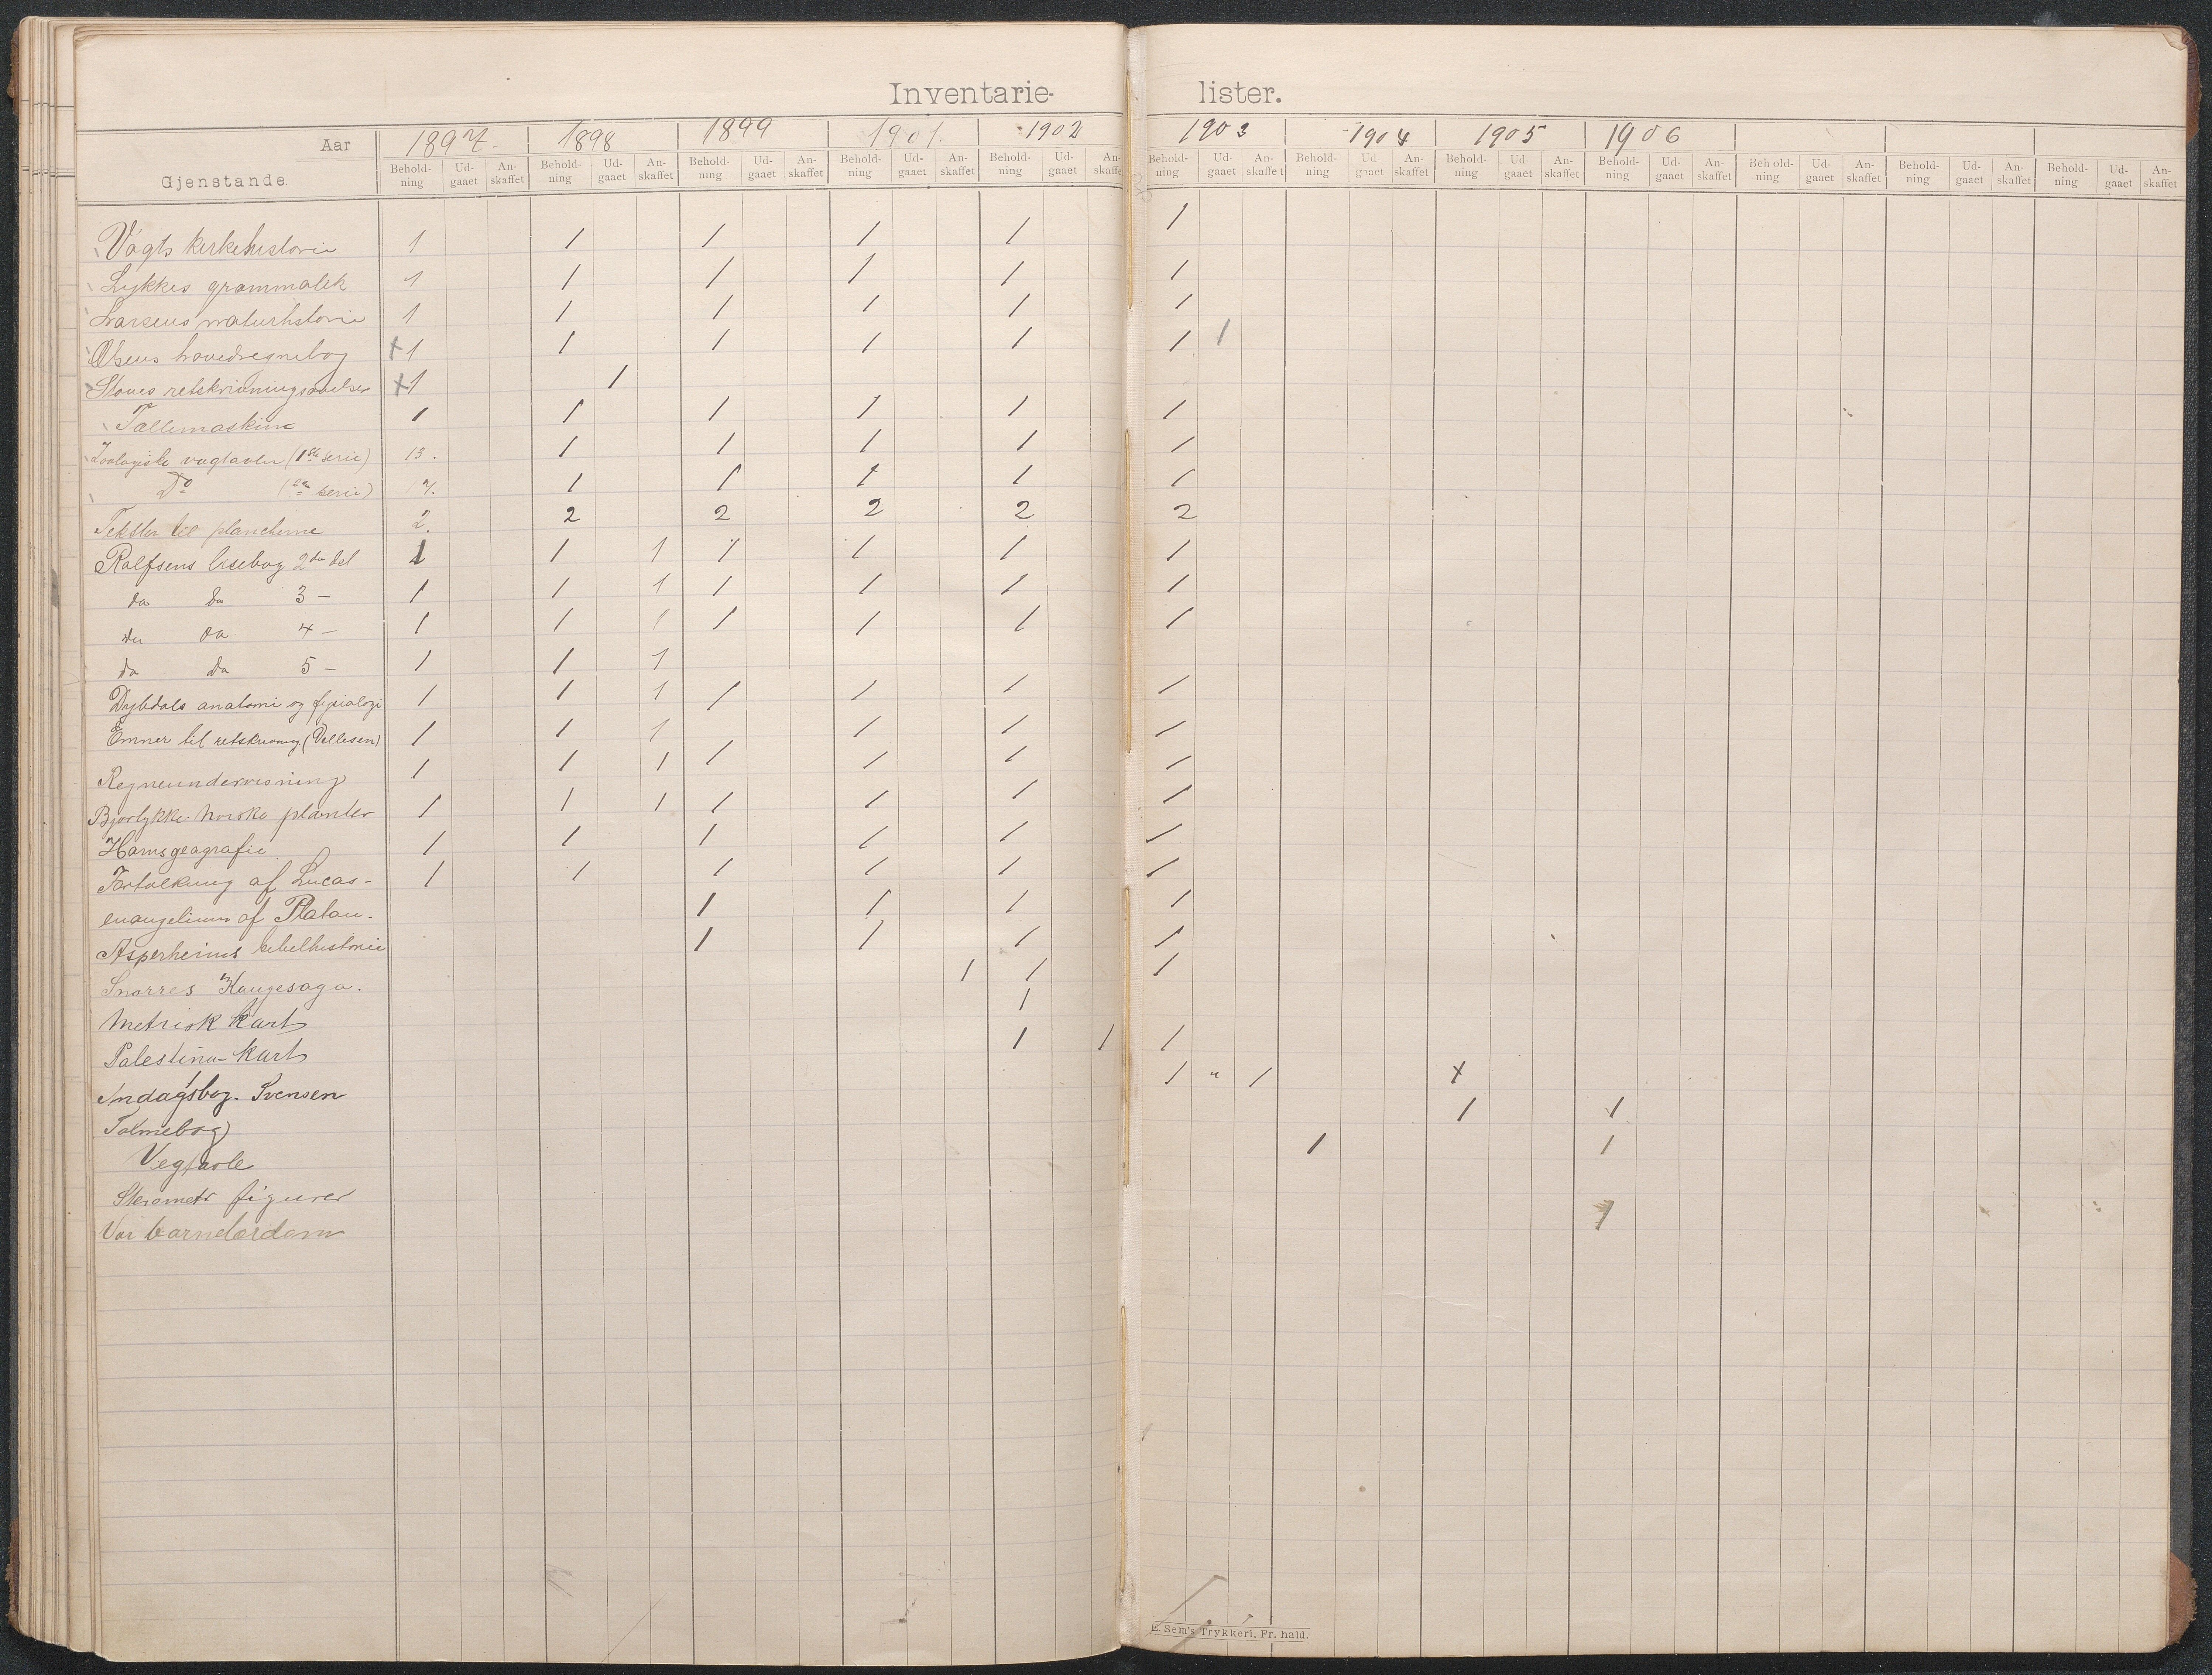 Inventarie- lister.
Aar 1897 1898 1899 1901. 1902 1903 1904 1905 1906
Gjenstande. Behold-ning Ud-gaaet An-skaffet Behold-ning Ud-gaaet An-skaffet Behold-ning Ud-gaaet An-skaffet Behold-ning Ud-gaaet An-skaffet Behold-ning Ud-gaaet An-skaffet Behold-ning Ud-gaaet An-skaffet Behold-ning Ud gaaet An-skaffet Behold-ning Ud-gaaet An-skaffet Behold-ning Ud-gaaet An-skaffet Behold-ning Ud-gaaet An-skaffet Behold-ning Ud-gaaet An-skaffet Behold-ning Ud-gaaet An-skaffet
Vogts kirkehistorie 1 1 1 1 1 1
Lykkes grammatik 1 1 1 1 1 1
Larsens naturhistorie 1 1 1 1 1 1
Olsens hovedregnebog +1 1 1 1 1 1 1
retskrivningsøvelser +1 1
Tællemaskine 1 1 1 1 1 1
Zoologiske vægtavler (1ste serie) 13. 1 1 1 1 1
Do (2en serie) 17. 1 1 1 1 1
Tekster til plancherne 2. 2 2 2 2 2
Rolfsens læsebog 2den del 1 1 1 1 1 1 1
do do 3 - 1 1 1 1 1 1 1
do do 4 - 1 1 1 1 1 1 1
do do 5 - 1 1 1
Dybdals anatomi og fysiologi 1 1 1 1 1 1 1
Emner til retskrivning 1 1 1 1 1 1
Regneundervisning 1 1 1 1 1 1 1
Bjørlykke. Norske planter 1 1 1 1 1 1 1
Horns geografie 1 1 1 1 1 1
Fortolkning af Lucas- 1 1 1 1 1 1
evangelium af Platou. 1 1 1 1
Asperheims bibelhistorie 1 1 1 1
Snorres Kongesaga. 1 1 1
Metrisk kart 1
Palestina-kart 1 1 1
dagsbog. Svensen 1 " 1 +
Salmebog 1 1
1 1
Sterometr figurer
Vor barnelærdom 1
E. Sem's Trykkeri, Fr. hald.